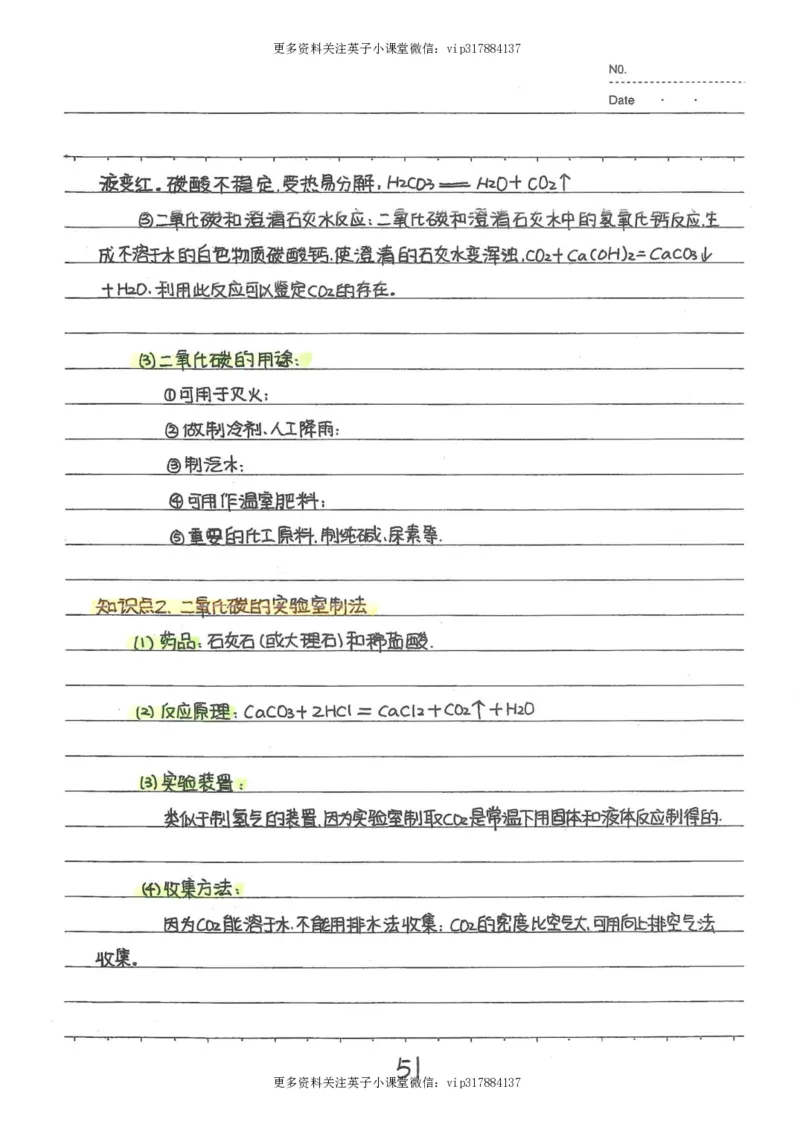 更多资料关注英子小课堂微信：vip317884137
N0.
Date · ·
液变红。碳酸不稳定,受热易分解, H2CO3 == H2O+ CO2↑
③二氧化碳和澄清石灰水反应:二氧化碳和澄清石灰水中的氢氧化钙反应,生
成不溶于水的白色物质碳酸钙,使澄清的石灰水变浑浊,CO2+Ca(OH)2=CaCO3↓
+H2O.利用此反应可以鉴定CO2的存在。
(3)二氧化碳的用途:
①可用于灭火;
②做制冷剂、人工降雨;
③制汽水;
④可用作温室肥料;
⑤重要的化工原料.制纯碱、尿素等.
知识点2、二氧化碳的实验室制法
(1)药品:石灰石(或大理石)和稀盐酸.
(2)反应原理:CaCO3+2HCl=CaCl2+CO2↑+H2O
(3)实验装置:
类似于制氢气的装置,因为实验室制取CO2是常温下用固体和液体反应制得的.
(4)收集方法:
因为CO2能溶于水.不能用排水法收集;CO2的密度比空气大,可用向上排空气法
收集。
51
更多资料关注英子小课堂微信：vip317884137